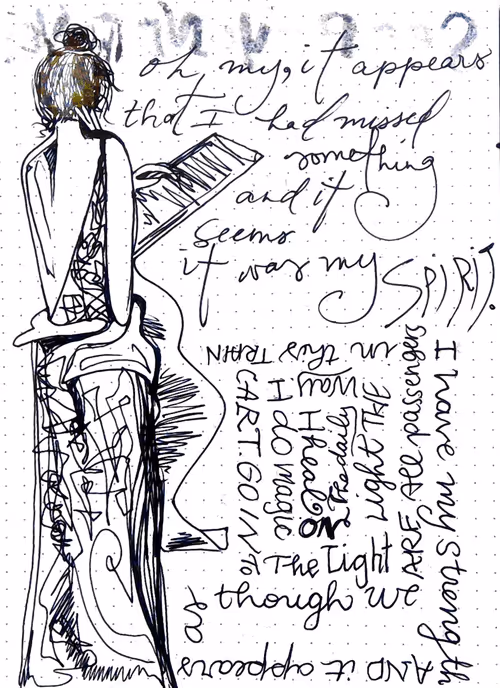 oh, my, it appears
that I had missed
something
and it
seems
it was my SPIRIT.
I have my strength
AND it appears
as
though we
ARE All passengers
in this TRAIN
CART. GO INto
The Light
Light
way
I do Magic
I Heal ON
The daily